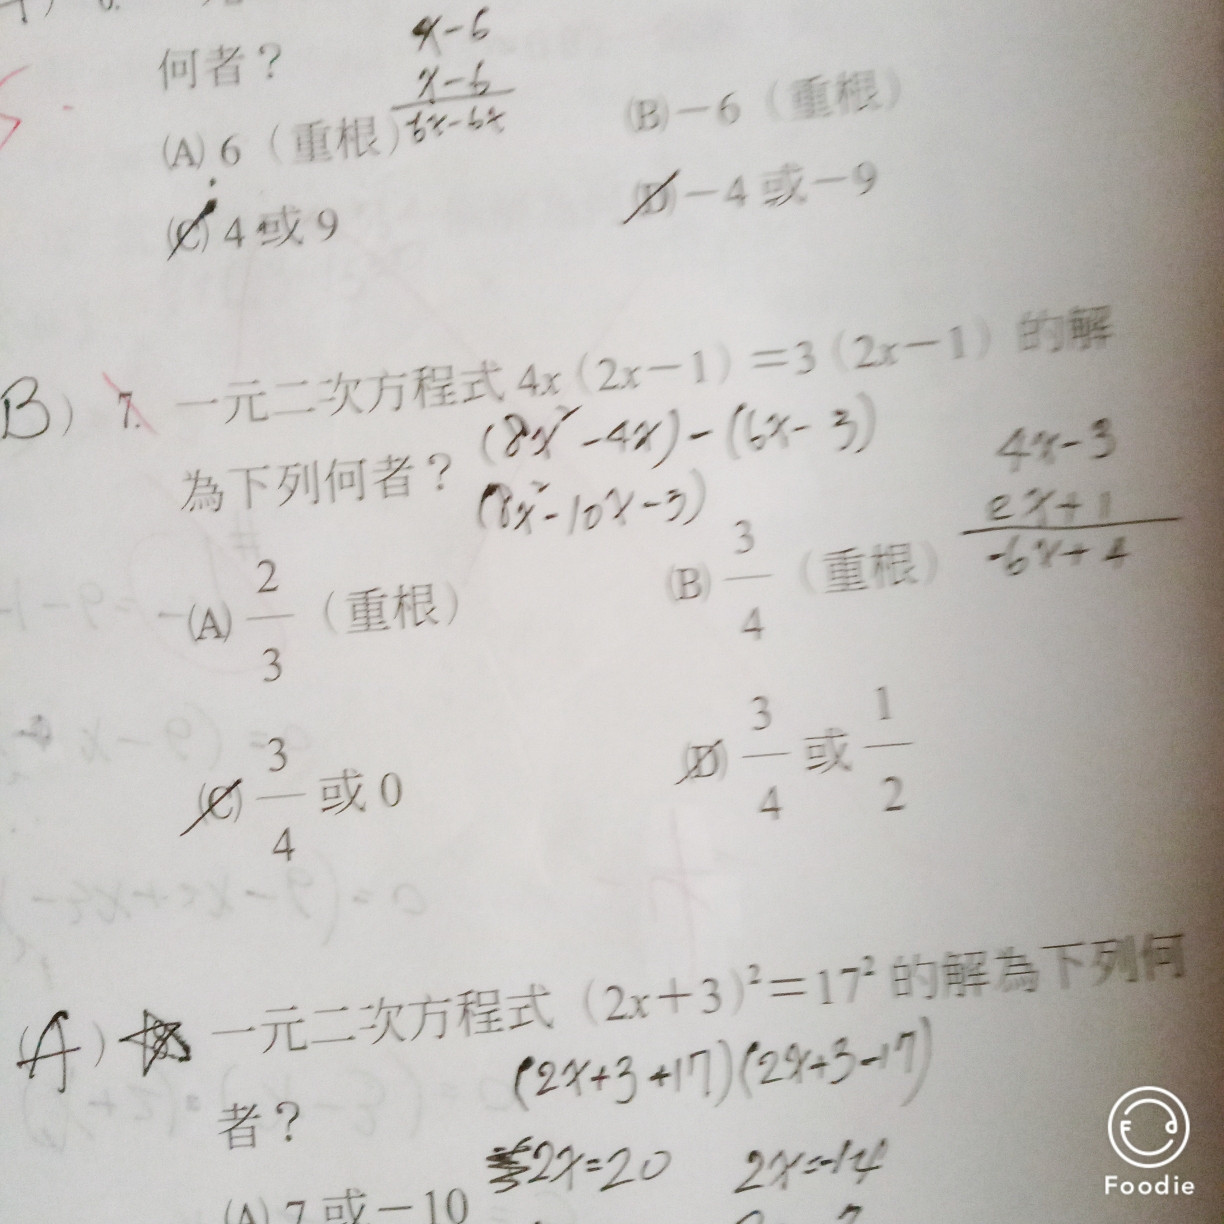 何者？
x-6
x-6
6x-6x
(A) 6（重根）
(B)－6（重根）
(C) 4 或 9
(D)－4 或－9
B) 7. 一元二次方程式 4x（2x－1）＝3（2x－1）的解
為下列何者？
(8x²-4x)-(6x-3)
(8x²-10x-3)
4x-3
2x+1
-6x+4
(A) 2/3（重根）
(B) 3/4（重根）
(C) 3/4 或 0
(D) 3/4 或 1/2
(A) 一元二次方程式（2x＋3）²＝17² 的解為下列何
者？
(2x+3+17)(2x+3-17)
2x=20 2x=-14
(A) 7 或－10
Foodie